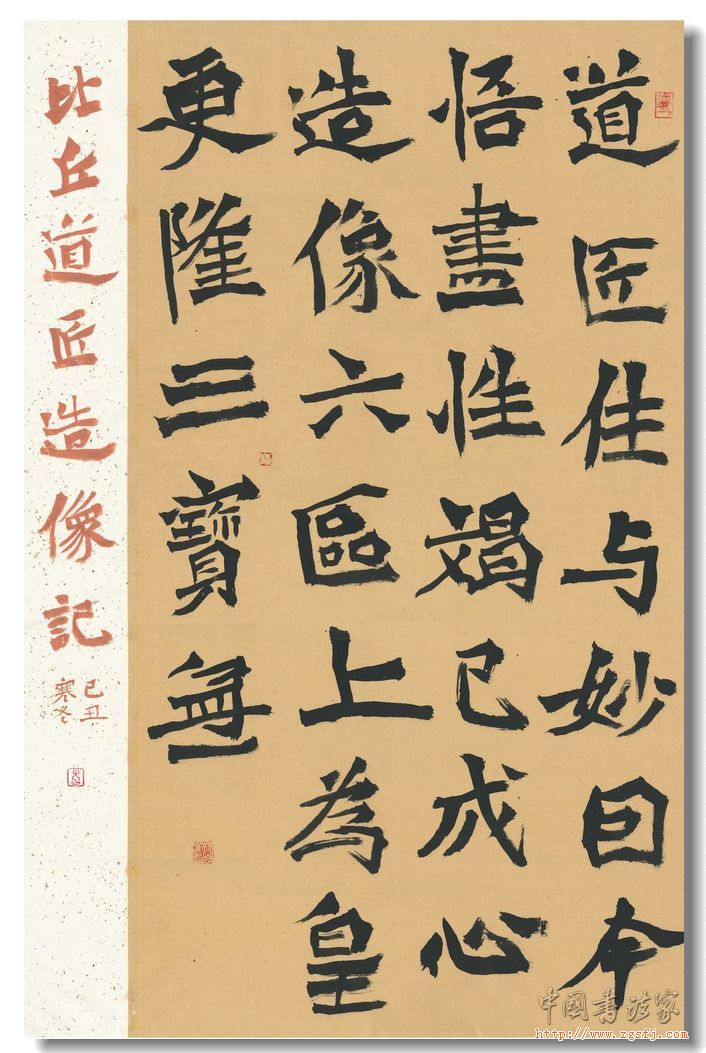 道匠住与妙囙本
悟盡性竭己成心
造像六區上為皇
更隆三寶無
比丘道匠造像記
己丑
寒冬
中國書法家
http://www.zgsfj.com